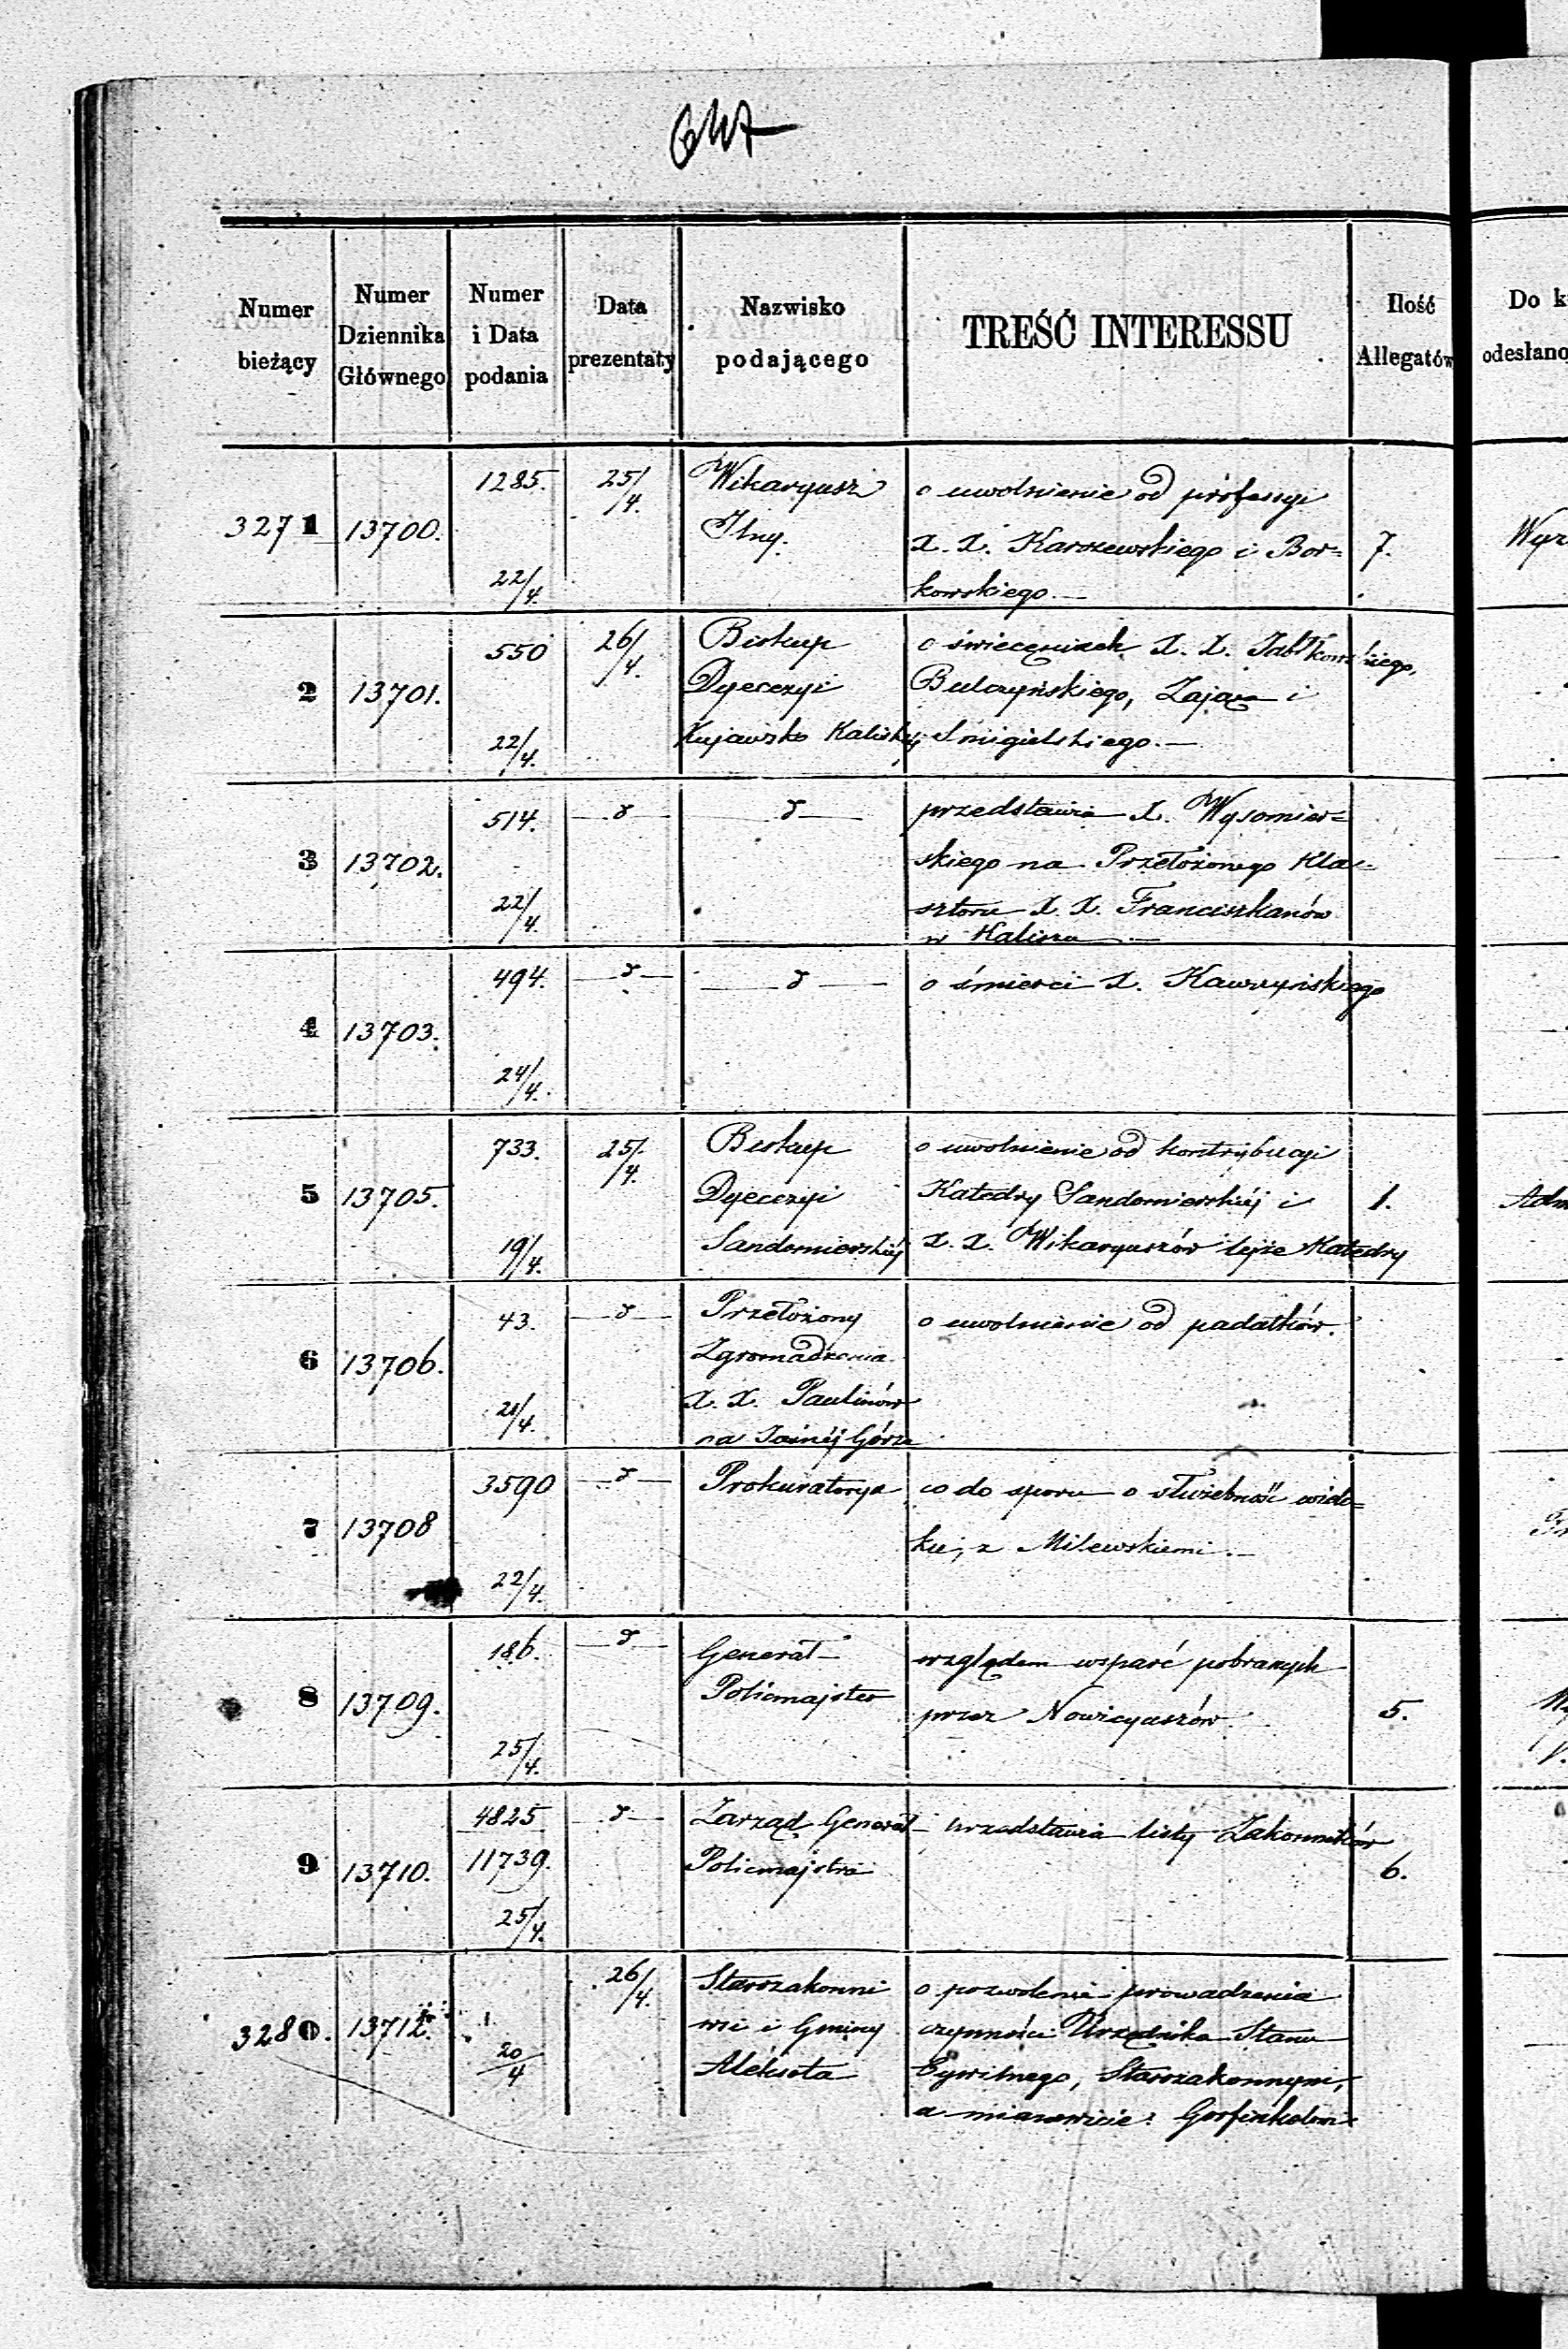 Numer bieżący
Numer Dziennika Głównego
Numer i Data podania
Data prezentaty
Nazwisko podającego
TREŚĆ INTERESSU
Ilość Allegatów
Do k
odesłano
3271
13700.
1285.
22/4.
25/4.
Wikaryusz
Jlny.
o uwolnienie od professyi
X. X. Karszewskiego i Bor=
kowskiego.—
7.
Wyz
2
13701.
550
22/4.
26/4.
Biskup
Dyecezyi
Kujawsko Kaliskiéj
o święceniach X. X. Jabłkowskiego,
Bulczyńskiego, Zająca i
Smigielskiego.—
3
13702.
514.
22/4.
przedstawia X. Wysomier=
skiego na Przełożonego Kla=
sztoru X. X. Franciszkanów
w Kaliszu —
4
13703.
494.
24/4.
o śmierci X. Kawczyńskiego
5
13705.
733.
19/4.
25/4.
Biskup
Dyecezyi
Sandomierskiéj
o uwolnienie od kontrybucyi
Katedry Sandomierskiéj i
X. X. Wikaryuszów tejże Katedry
1.
Adm
6
13706.
43.
21/4.
Przełożony
Zgromadzenia
X. X. Paulinów
na Jasnéj Górze
o uwolnienie od podatków.
7
13708
3590
22/4.
Prokuratorya
co do sporu o służebność wido=
ku, z Milewskiemi.—
8
13709.
186.
25/4.
Generał
Policmajster
względem wsparć pobranych
przez Nowicyuszów
5.
9
13710.
4825
11739.
25/4.
Zarząd Generał
Policmajstra
przedstawia listy Zakonników
6.
3280.
13712.
20/4
26/4.
Starozakonni
wsi i Gminy
Aleksota
o pozwolenie prowadzenia
czynności Urzędnika Stanu
Cywilnego, Starozakonnym,
a mianowicie: Gorfinkelowi